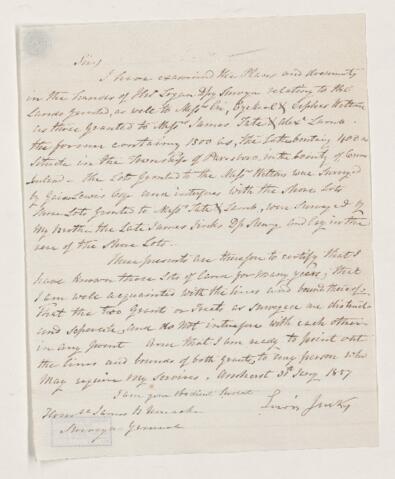 Sir,
I have examined the Plans and documents
in the hands of Thos Logan Dpy Surveyor relating to the
Lands Granted, as well to Messrs Ezekiel & Cephas Welton
as those Granted to Messrs James Tate & Alexr Lamb.
the former containing 1500 as, the Latter containg 400 as
Situate in the Township of Parsboro, in the County of Cum
berland. the Lots Granted to the Messrs Weltons was Surveyed
by Gaius Lewis Esqr and interferes with the Shore Lots
Lots Granted to Messrs Tate & Lamb, were Surveyed by
My brother the Late James Dpy Survey and Lay in the
rear of the Shore Lots.
These presents are therefore to certify that I
have known those Lots of Land for many years, that
I am well acquainted with the lines and bounds thereof.
That the two Grant or Tracts as surveyed are distinct
and Seperate, and do Not interfere with each other
in any point. And that I am ready to point out
the lines and bounds of both grants, to any person who
May require My Services. Amherst 31st Jany 1837
I am your obedient Servt
Honble James
Surveyor General